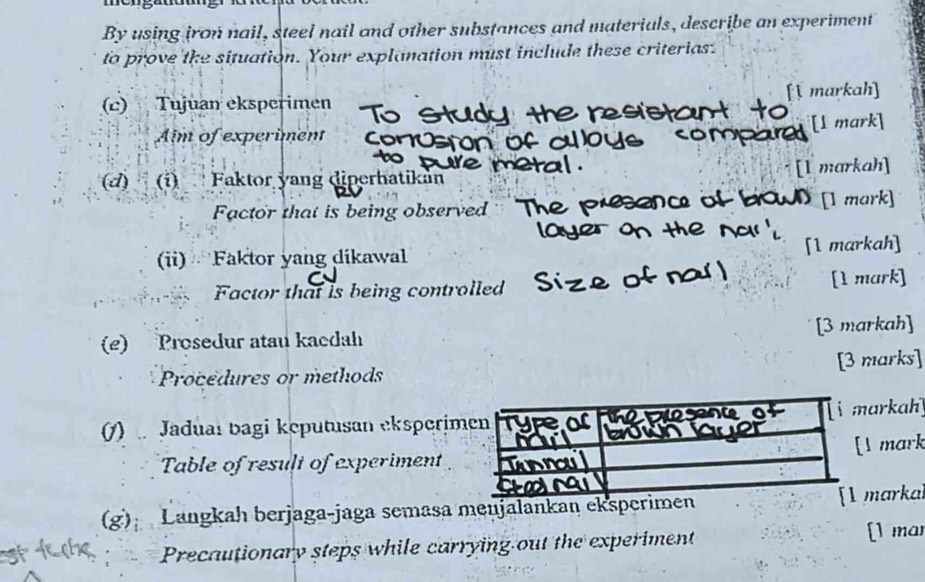 By using iron nail, steel nail and other substances and materials, describe an experiment
to prove the situation. Your explanation must include these criterias:
(c) Tujuan eksperimen [1 markah]
Aim of experiment [1 mark]
To study the resistant to
corrosion of alloys compared
to pure metal.
(d) (i) Faktor yang diperhatikan [1 markah]
RV
Factor that is being observed The presence of brown [1 mark]
layer on the nail
(ii) Faktor yang dikawal [1 markah]
CV
Factor that is being controlled Size of nail [1 mark]
(e) Prosedur atau kaedah [3 markah]
Procedures or methods [3 marks]
(f) Jadual bagi keputusan eksperimen [1 markah]
Table of result of experiment [1 mark
Type of nail The presence of brown layer
Steel nail
(g) Langkah berjaga-jaga semasa menjalankan eksperimen [1 marka
Precautionary steps while carrying out the experiment [1 mar